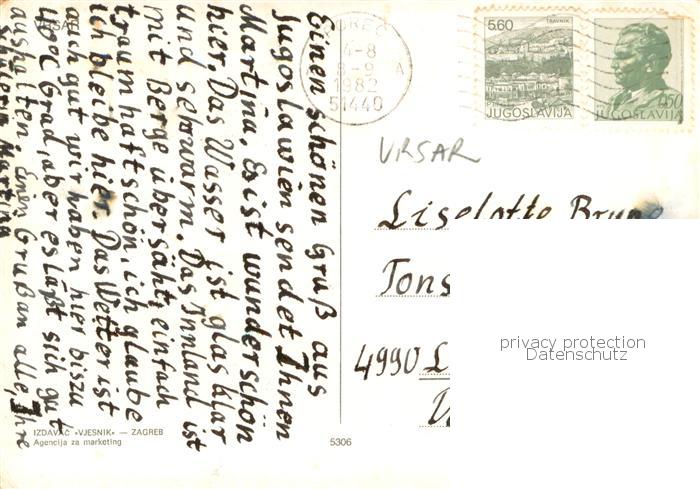 VRSAR
Einen schönen Gruß aus
Jugoslawien sendet Ihnen
Martina. Es ist wunderschön
hier. Das Wasser ist glasklar
und sehr warm. Das Innland ist
mit Berge übersäht, einfach
traumhaft schön, ich glaube
ich bleibe hier. Das Wetter ist
auch gut wir haben hier bis zu
Grad, aber es läßt sich gut
aushalten. Einen Gruß an alle, Ihre
Martina
IZDAVAČ »VJESNIK« — ZAGREB
Agencija za marketing
5306
POREČ
4-8
8-9 A
1982
51440
5.60
TRAVNIK
JUGOSLAVIJA
0.50
JUGOSLAVIJA
VRSAR
Liselotte
Tons
4990 L
privacy protection
Datenschutz